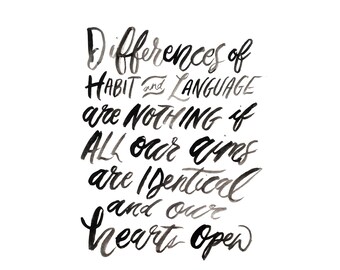 Differences of
HABIT and LANGUAGE
are NOTHING if
ALL our aims
are IDentical
and our
hearts open